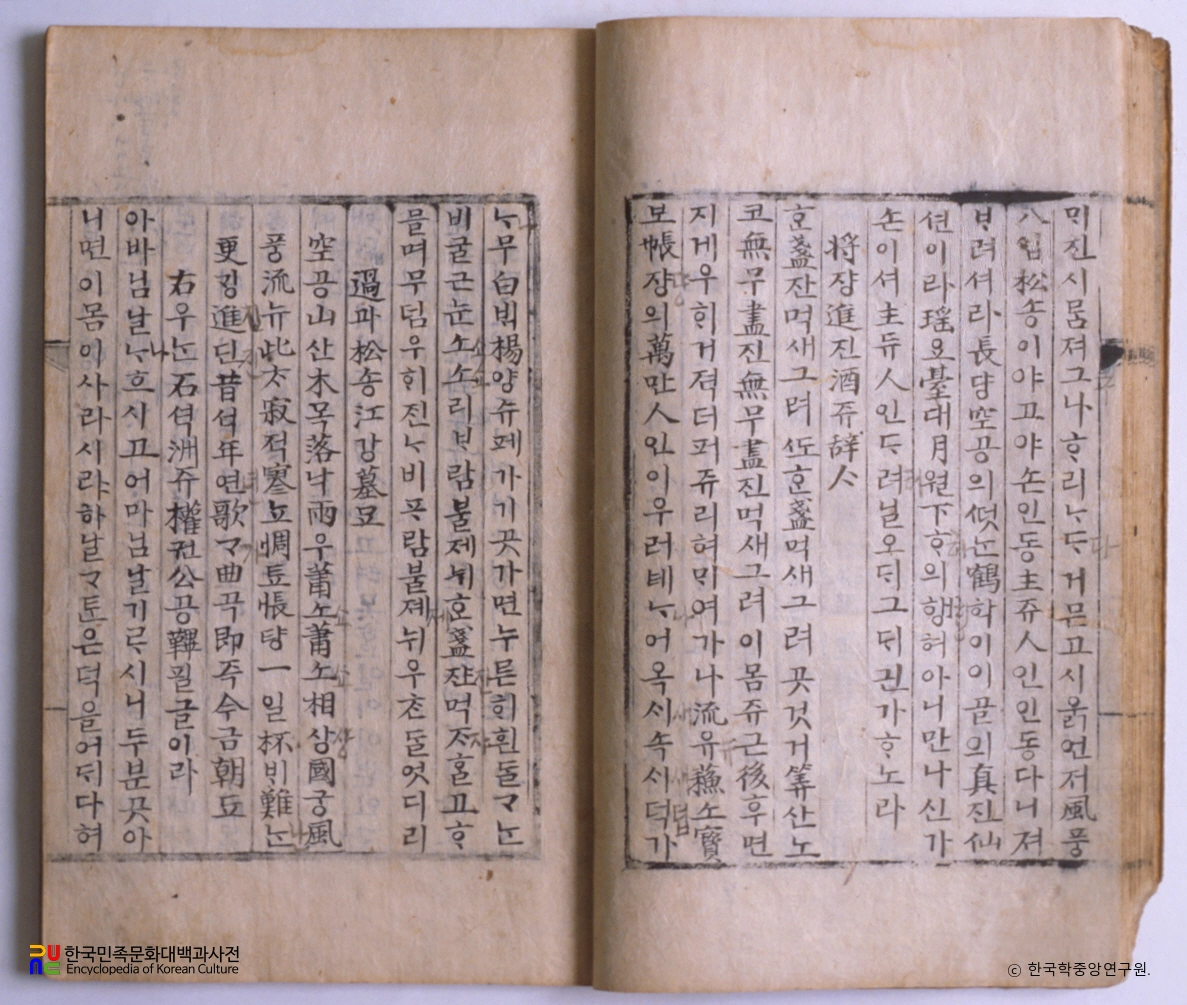 ᄆᆡ진시롬져그나ᄒᆞ리ᄂᆞᄃᆞ거믄고시욹언저風풍
入입松숑이야고야손인동主쥬人인인동다니져
ᄇᆞ려셔라長댱空공의ᄯᅥᆺᄂᆞᆫ鶴학이이골의真진仙
션이라瑤요臺ᄃᆡ月월下하의ᄒᆡᆼ혀아니만나신가
손이셔主듀人인ᄃᆞ려닐오ᄃᆡ그ᄃᆡ귄가ᄒᆞ노라
將쟝進진酒쥬辭ᄉᆞ
ᄒᆞᆫ盞잔먹새그려ᄯᅩᄒᆞᆫ盞먹새그려곳것거算산노
코無무盡진無무盡진먹새그려이몸쥬근後후면
지게우ᄒᆡ거적더퍼쥬리혀ᄆᆡ여가나流유蘇소寶
보帳쟝의萬만人인이우러녜나어옥새속새덕가
ᄂᆞ무白ᄇᆡᆨ楊양슈페가기곳가면누른ᄒᆡ흰ᄃᆞᆯᄀᆞᄂᆞᆫ
비굴근눈쇼쇼리ᄇᆞ람불제뉘ᄒᆞᆫ盞잔먹쟈ᄒᆞᆯ고ᄒᆞ
믈며무덤우ᄒᆡ진ᄂᆞ비ᄑᆞ람불제뉘우ᄎᆞᆫᄃᆞᆯ엇디리
過과松송江강墓묘
空공山산木목落낙雨우蕭쇼蕭쇼相샹國국風
풍流뉴此ᄎᆞ寂적寥뇨惆튜悵턍一일杯ᄇᆡ難난
更ᄀᆡᆼ進진昔셕年연歌가曲곡即즉今금朝됴
右우ᄂᆞᆫ石셕洲쥬權권公공韠필글이라
아바님날나ᄒᆞ시고어마님날기ᄅᆞ시니두분곳아
니면이몸이사라시랴하ᄂᆞᆯᄀᆞᄐᆞᆫ은덕을어ᄃᆡ다혀
한국민족문화대백과사전
Encyclopedia of Korean Culture
ⓒ 한국학중앙연구원.